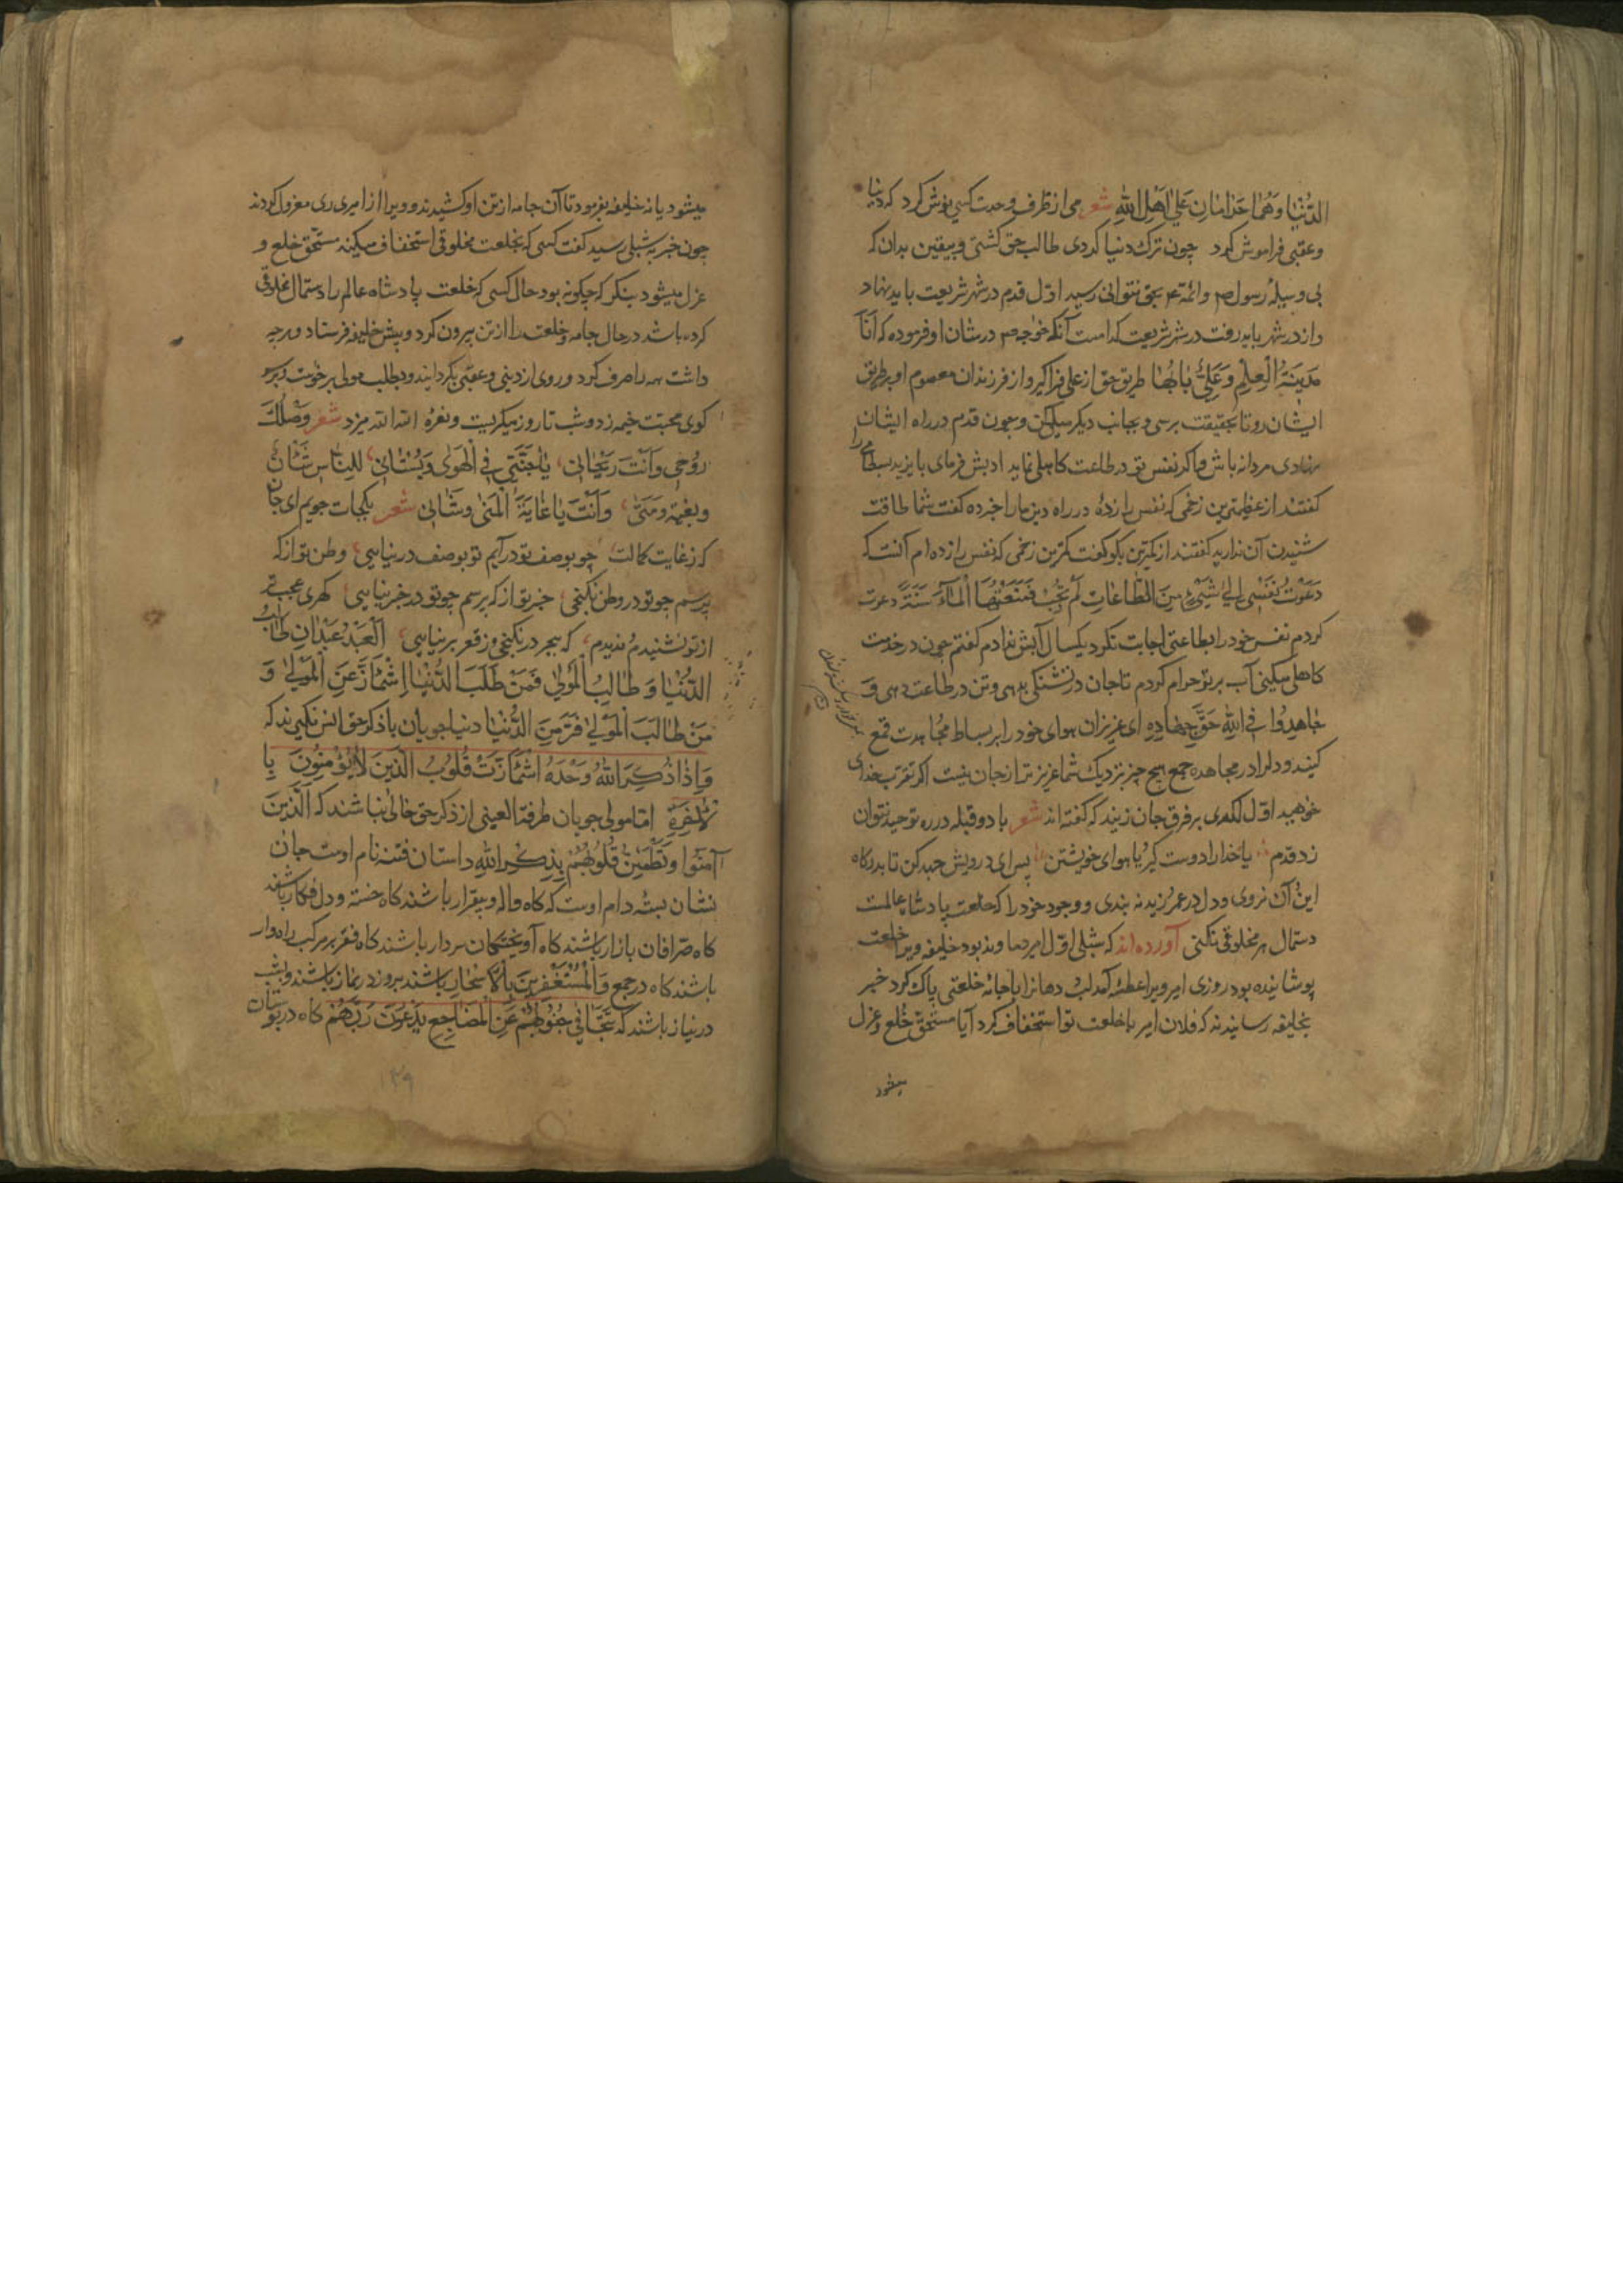 الدُّنْیَا وَهُمَا حَرَامَانِ عَلیٰ اَهْلِ اللّٰهِ شعر می از ظرف وحدت کسی نوش کرد که دنیا
و عقبی فراموش کرد چون ترک دنیا کردی طالب حق کشتی و بیقین بدان که
بی وسیلهٔ رسول ص و ائمه ع بحق نتوانی رسید اوّل قدم در شهر شریعت باید نهاد
و از در شهر باید رفت در شهر شریعت کدامست آنکه خواجه ص در شان او فرموده که اَنَا
مَدِینَةُ الْعِلْمِ وَعَلِیٌّ بَابُهَا طریق حق از علی فراکیر و از فرزندان معصوم او بر طریق
ایشان رو تا بحقیقت برسی و بجانب دیکر میل مکن و چون قدم در راه ایشان
نهادی مردانه باش و اکر نفس تو در طاعت کاهلی نماید ادبش فرمای بایزید بسطامی را
کفتند از عظیمترین زخمی که نفس را زدهٔ در راه دین ما را خبر ده کفت شما طاقت
شنیدن آن ندارید کفتند از کمترین بکو کفت کمترین زخمی که نفس را زده ام آنست که
دَعَوْتُ نَفْسِی اِلیٰ شَیْءٍ مِنَ الطَّاعَاتِ لَمْ تُجِبْ فَمَنَعْتُهَا الْمَاءَ سَنَةً دعوت
کردم نفس خود را بطاعتی اجابت نکرد یکسال آبش ندادم کفتم چون در خدمت
کاهلی میکنی آب بر تو حرام کردم تا جان در تشنکی بدهی و تن در طاعت دهی وَ
جَاهِدُوا فِی اللّٰهِ حَقَّ جِهَادِهِ ای عزیزان هوای خود را بر بساط مجاهدت قمع
کنید و دل را در مجاهده جمع هیچ چیز نزدیک شما عزیزتر از جان نیست اکر تقرب خدای
خواهید اوّل لکدی بر فرق جان زنید که کفته اند شعر با دو قبله در ره توحید نتوان
زد قدم یا خدا را دوست کیر یا هوای خویشتن پس ای درویش جهد کن تا بدرکاه
این و آن نروی و دل در عمر زید نه بندی و وجود خود را که خلعت پادشاه عالمست
دستمال هر مخلوقی نکنی آورده اند که شبلی اوّل امیر دماوند بود خلیفه ویرا خلعت
پوشانیده بود روزی امیر ویرا عطسه آمد لب و دهان را با جامهٔ خلعتی پاک کرد خبر
بخلیفه رسانیدند که فلان امیر با خلعت تو استخفاف کرد آیا مستحق خُلع و عزل
میشود
میشود یا نه خلیفه بفرمود تا آن جامه از تن او کشیدند و ویرا از امیری ری معزول کردند
چون خبر به شبلی رسید کفت کسی که بخلعت مخلوقی استخفاف میکند مستحق خلع و
عزل میشود بنکر که چکونه بود حال کسی که خلعت پادشاه عالم را دستمال مخلوقی
کرده باشد در حال جامه و خلعت را از تن بیرون کرد و پیش خلیفه فرستاد و هر چه
داشت همه را صرف کرد و روی از دینی و عقبی بکردانید و بطلب مولی برخواست و بر سر
کوی محبت خیمه زد و شب تا روز میکریست و نعره الله الله میزد شعر وَصْلُكَ
رُوحِی وَاَنْتَ رَیْحَانِی یَا جَنَّتِی فِی الْهَوٰی وَبُسْتَانِی لِلنَّاسِ شَانٌ
وبغیة ومنیً وَاَنْتَ یَا غَایَةَ الْمُنیٰ وَشَانِی شعر بکجات جویم ای جان
که ز غایت کمالت چو بوصف تو درآیم تو بوصف در نیایی وطن تو از که
پرسم چو تو در وطن نکنجی خبر تو از که پرسم چو تو در خبر نیایی کهری عجب تر
از تو نشنیدم و ندیدم که ببحر در نکنجی و ز قعر بر نیایی اَلْعَبْدُ عَبْدَانِ طَالِبُ
الدُّنْیَا وَ طَالِبُ الْمَوْلٰی فَمَنْ طَلَبَ الدُّنْیَا اِشْمَأَزَّ عَنِ الْمَوْلٰی وَ
مَنْ طَالَبَ الْمَوْلٰی فَرَّ مِنَ الدُّنْیَا دنیا جویان با ذکر حق انس نکیرند که
وَاِذَا ذُكِرَ اللّٰهُ وَحْدَهُ اشْمَأَزَّتْ قُلُوبُ الَّذِینَ لَا یُؤْمِنُونَ بِا
لْاٰخِرَةِ اما مولی جویان طرفة العینی از ذکر حق خالی نباشند که اَلَّذِینَ
آمَنُوا وَتَطْمَئِنُّ قُلُوبُهُمْ بِذِكْرِ اللّٰهِ داستان فتنه نام اوست جان
نشان بسته دام اوست که کاه واله و بیقرار باشند کاه خسته و دل افکار باشند
کاه صرافان بازار باشند کاه آویختکان سر دار باشند کاه فقر بر مرکب راهوار
باشند کاه در جمع وَالْمُسْتَغْفِرِینَ بِالْاَسْحَارِ باشند بروز در نماز باشند و بشب
در نیاز باشند که تَتَجَافٰی جُنُوبُهُمْ عَنِ الْمَضَاجِعِ یَدْعُونَ رَبَّهُمْ کاه در بوستان
۱۲۹